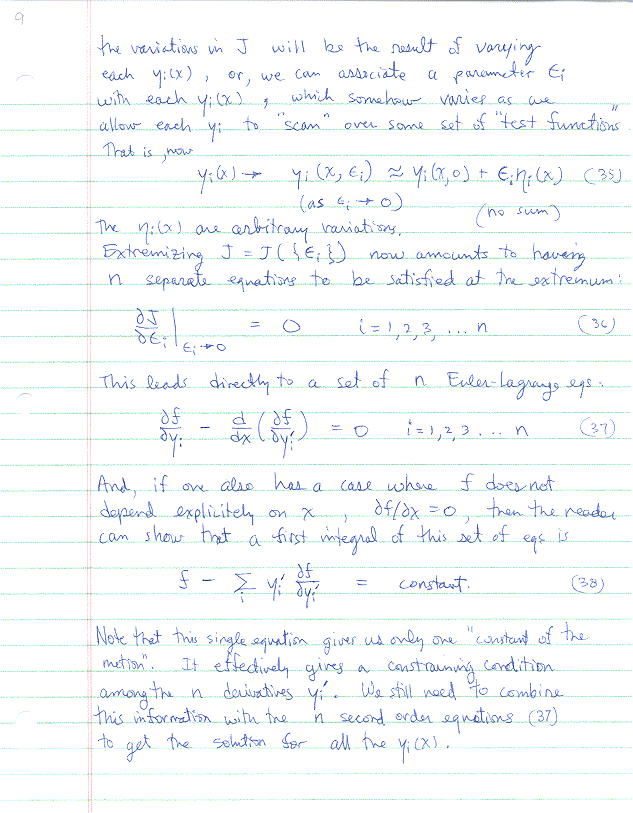 9
the variations in J will be the result of varying
each yᵢ(x), or, we can associate a parameter εᵢ
with each yᵢ(x), which somehow varies as we
allow each yᵢ to "scan" over some set of "test functions".
That is, now
yᵢ(x) → yᵢ(x, εᵢ) ≈ yᵢ(x,0) + εᵢηᵢ(x) (35)
(as εᵢ → 0) (no sum)
The ηᵢ(x) are arbitrary variations.
Extremizing J = J({εᵢ}) now amounts to having
n separate equations to be satisfied at the extremum:
∂J/∂εᵢ |εᵢ→0 = 0 i = 1, 2, 3, ... n (36)
This leads directly to a set of n Euler-Lagrange eqs.
∂f/∂yᵢ - d/dx (∂f/∂yᵢ′) = 0 i = 1, 2, 3 ... n (37)
And, if one also has a case where f does not
depend explicitely on x, ∂f/∂x = 0, then the reader
can show that a first integral of this set of eqs is
f - Σᵢ yᵢ′ ∂f/∂yᵢ′ = constant. (38)
Note that this single equation gives us only one "constant of the
motion". It effectively gives a constraining condition
among the n derivatives yᵢ′. We still need to combine
this information with the n second order equations (37)
to get the solution for all the yᵢ(x).